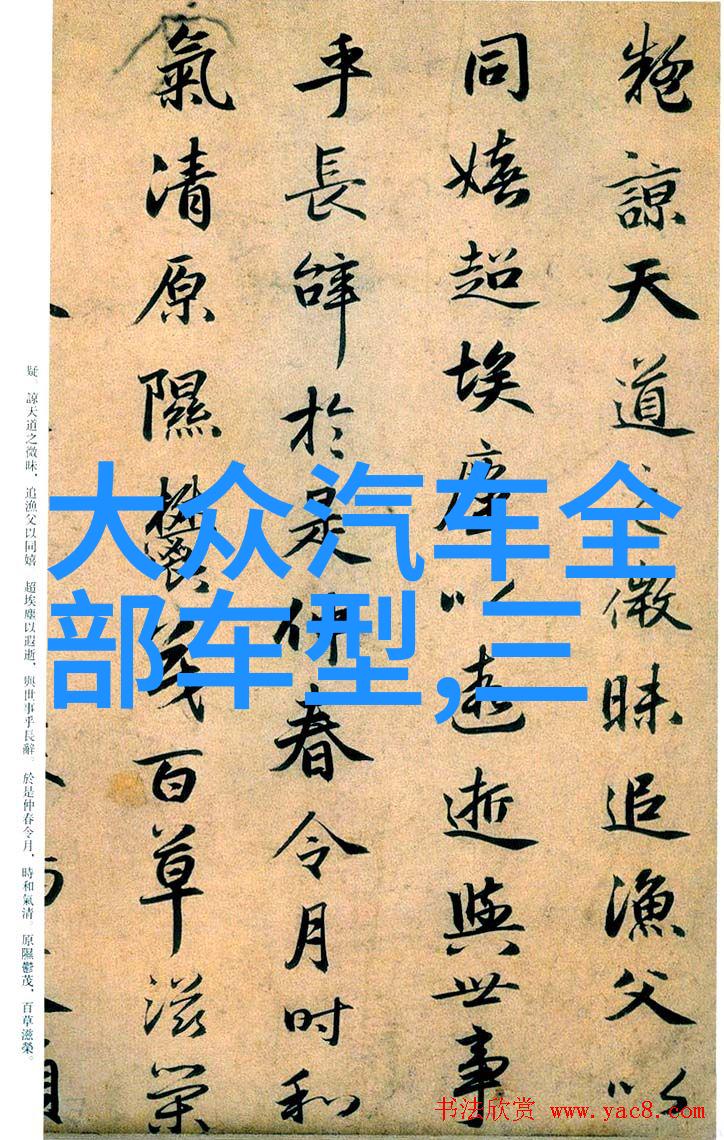 疑諒天道之微昧追漁父以
同嬉超埃塵以遐逝與世事
乎長辭於是仲春令月時和
氣清原隰鬱茂百草滋榮
疑。諒天道之微昧，追漁父以同嬉 超埃塵以遐逝，與世事乎長辭。於是仲春令月，時和氣清。原隰鬱茂，百草滋榮。
大众汽车全
部车型,三
书法欣赏 www.yac8.com